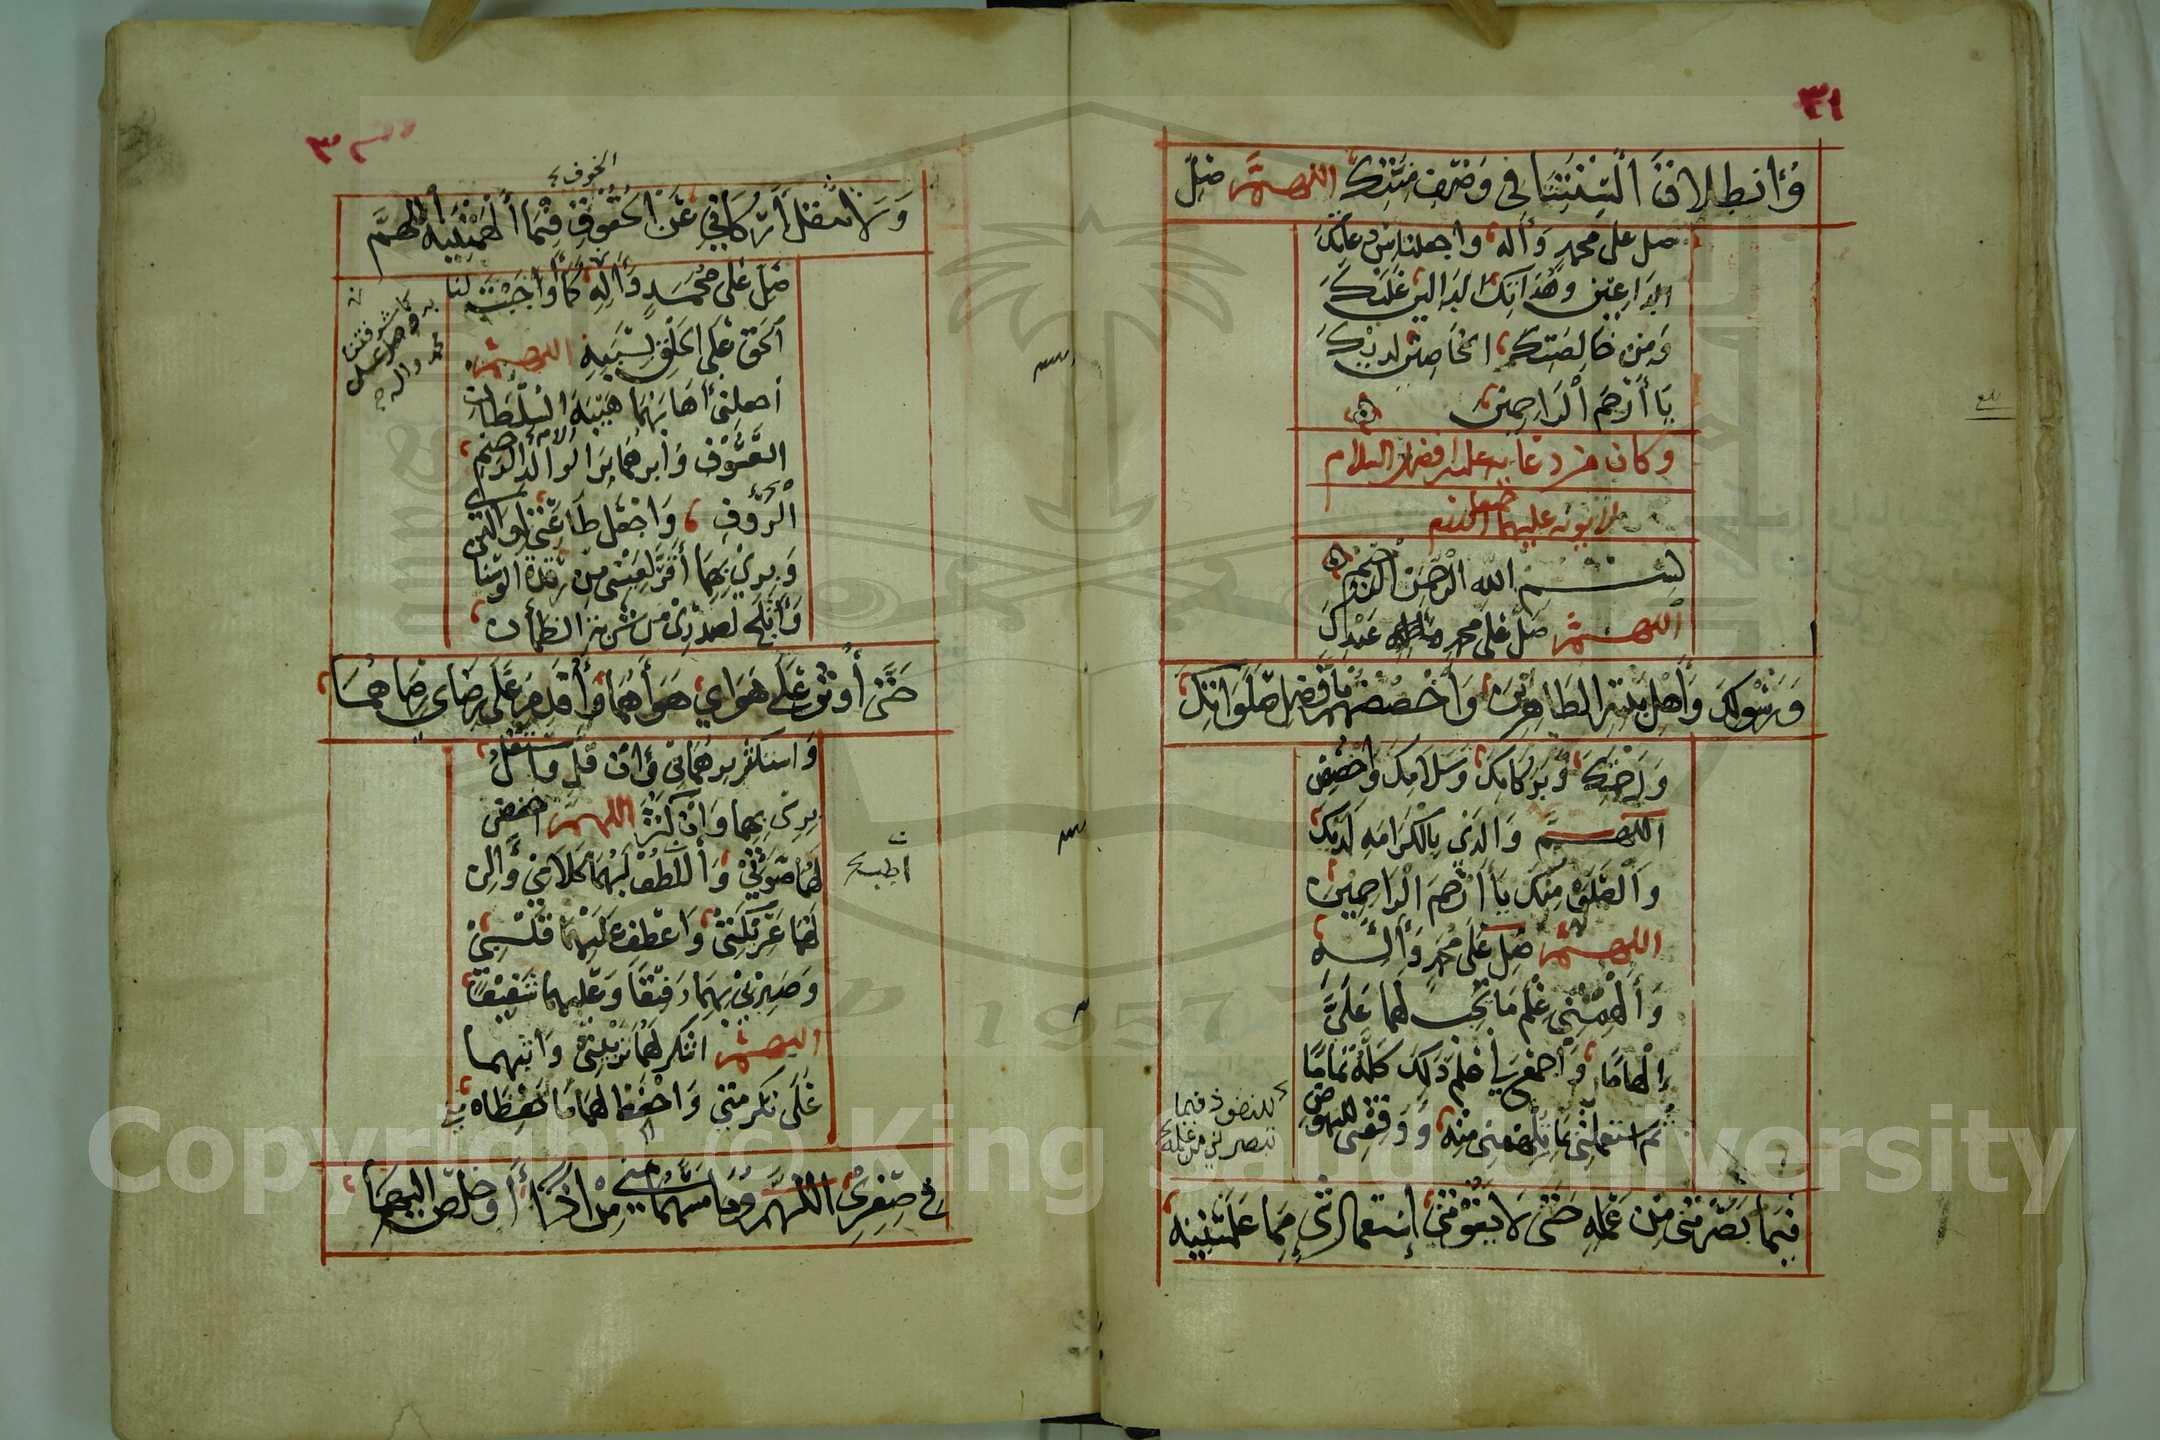 ٣١
وَانطِلاقَ أَلْسِنَتِنَا فِي وَصْفِ مِنَّتِكَ اللهم صَلِّ
صل على محمد وَآله واجعلنا من دعاتك
الدَاعِين وهُدَاتِكَ الدالين عَلَيْكَ
وَمِنْ خَاصَّتِكَ الخَاصِّين لَدَيْكَ
يَا أَرْحَمَ الْرَاحِمِين
وكان من دعائه عليه افضل السلام
لابويه عليهما السلام
بِسْمِ اللَّه الرَّحْمَن الرَّحِيم
اللهم صَلِّ عَلَى مُحَمَّدٍ عَبْدِكَ
وَرَسُولِكَ وَأَهْلِ بَيْتِهِ الطَاهِرِينَ وَاخْصُصْهُمْ بِأَفْضَلِ صَلَوَاتِكَ
وَرَحْمَتِكَ وَبَرَكَاتِكَ وَسَلَامِكَ وَاخْصُصِ
اللهم وَالِدَيَّ بِالْكَرَامَةِ لَدَيْكَ
وَالْصَّلَوٰةِ مِنْكَ يَا أَرْحَمَ الْرَاحِمِينَ
اللهم صَلِّ عَلَى مُحَمَّدٍ وَآلِهِ
وَأَلْهِمْنِي عِلْمَ مَا يَجِبُ لَهُمَا عَلَيَّ
إِلْهَامًا وَاجْمَعْ لِي عِلْمَ ذَلِكَ كُلِّهُ تَمَامًا
ثُمَّ اسْتَعْمِلْنِي بِمَا تُلْهِمُنِي مِنْهُ وَوَفِّقْنِي لِلنُّهُوضِ
للنفوذ فيما
تبصرني من علمه
فِيمَا تُبَصِّرُنِي مِنْ عِلْمِهِ حَتَّى لَا يَفُوتَنِي إِسْتِعْمَالُ شَيْءٍ مِمَّا عَلَّمْتَنِيهِ
بلغ
٣٢
الحفوف
وَلَا تَثْقُلَ أَرْكَانِي عَنِ الْحُقُوقِ فِيمَا أَلْهَمْتَنِيهِ اللَّهُمَّ
صَلِّ عَلَى مُحَمَّدٍ وَآلِهِ كَمَا أَوْجَبْتَ لنا
الْحَقَّ عَلَى الْخَلْقِ بِسَبَبِهِ اللهم
اجعلني أَهَابُهُمَا هَيْبَةَ السُّلْطَانِ
العَسُوفِ وَأَبَرُّهُمَا بِرَّ الْوَالِدِ الرحيم
الْرَّؤُوفِ وَاجْعَل طَاعَتِي لِوَالِدَيَّ
وَبِرِّي بِهِمَا أَقَرَّ لِعَيْنِي مِنْ رَقْدَةِ الْوَسْنَانِ
وَأَثْلَجَ لِصَدْرِي مِن شَرْبَةِ الظَمْآن
كما شرفتنا
به وصل على
محمد وآله
حَتَّى أُوثِرَ عَلَى هَوَايَ هَوَاهُمَا وَأُقَدِّمَ عَلَى رِضَايَ رِضَاهُمَا
وَاسْتَكْثِرَ بِرَّهُمَا بِي وَإِنْ قَلَّ وَاسْتَقِلَّ
بِرِّي بِهِمَا وَإِنْ كَثُرَ اللهم اخفض
لَهُمَا صَوْتِي وَالْطُفْ لَهُمَا كَلَامِي وَأَلِنْ
اطب
لَهُمَا عَرِيكَتِي وَاعْطِفْ عَلَيْهِمَا قَلْبِي
وَصَيِّرْنِي بِهِمَا رَفِيقًا وَعَلَيْهِمَا شَفِيقًا
اللهم اشْكُر لَهُمَا تَرْبِيَتِي وَاثِبْهُمَا
عَلَى تَكْرِمَتِي وَاحْفَظْ لَهُمَا مَا حَفِظَاه مِنِّي
فِي صِغَرِي اللَّهُمَّ وَمَا مَسَّهُمَا مِنِّي مِنْ أَذًى أَوْ خَلَصَ إِلَيْهِمَا
1957
Copyright © King Saud University